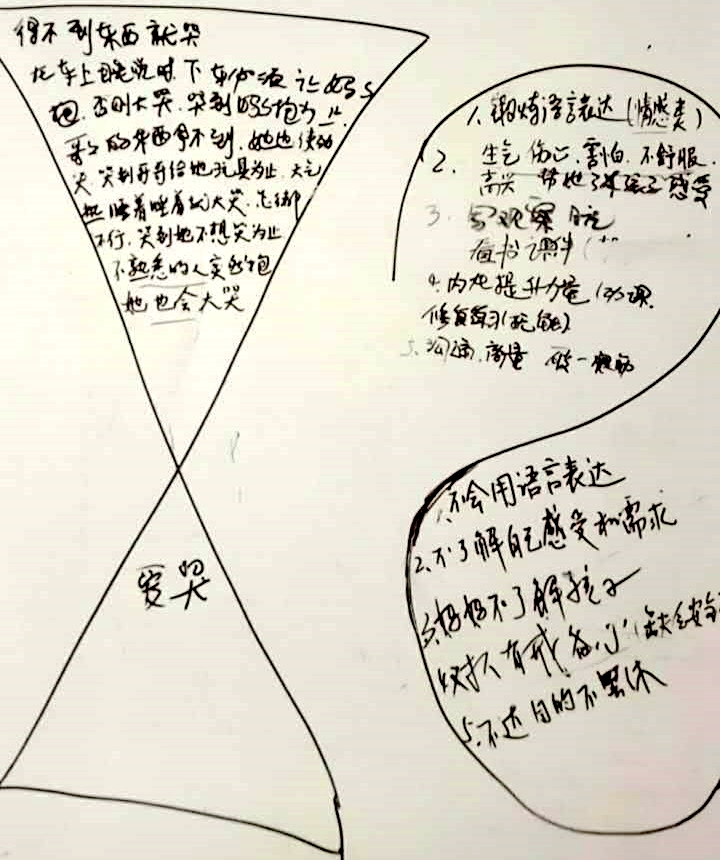 得不到东西就哭
在车上睡觉时，下车必须让妈妈
抱，否则大哭，哭到妈妈抱为止，
哥哥的东西拿不到，她也使劲
哭，哭到哥哥给她玩具为止，天气
热睡着睡着就大哭，怎样都
不行，哭到她不想哭为止
不熟悉的人突然抱
她也会大哭
爱哭
1、锻炼语言表达（情感类）
2、生气 伤心、害怕、不舒服、
高兴 带她了解孩子感受
3、写观察日记
看书 课
4、内在提升力量（功课
修复练习
5、沟通、商量 破一
1、不会用语言表达
2、不了解自己感受和需求
3、妈妈不了解孩子
4、对人有戒备心（缺乏安全
5、不达目的不罢休